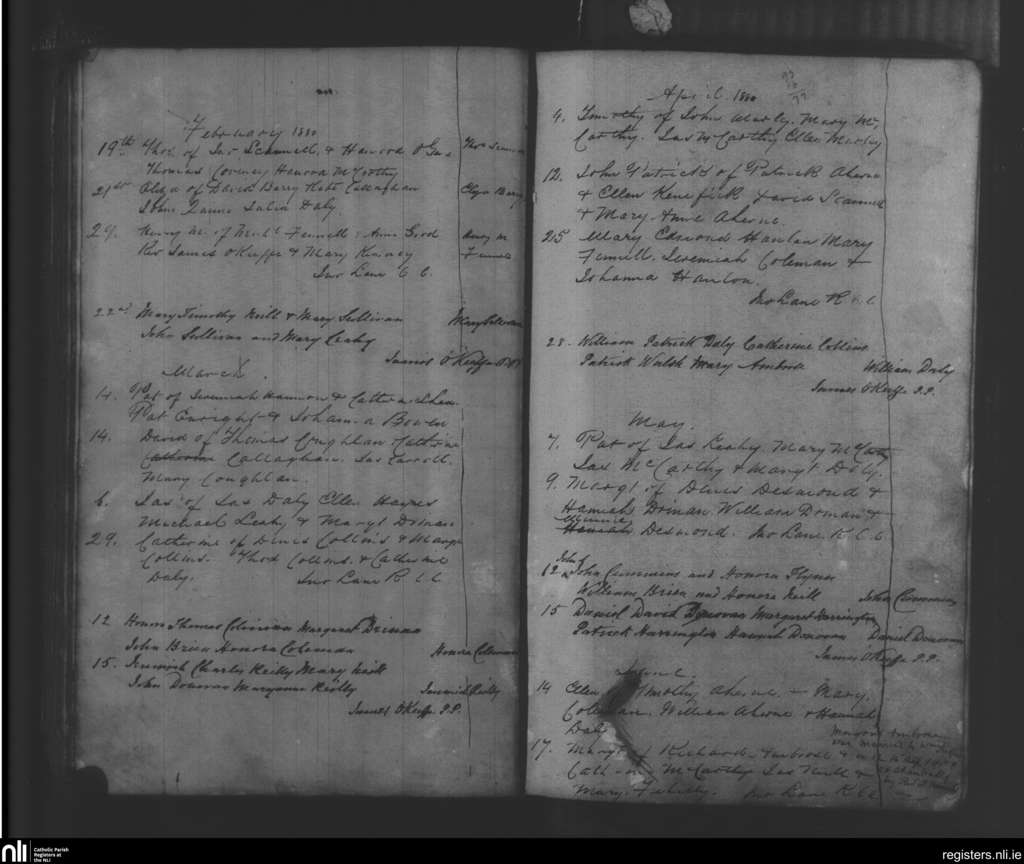 February 1880
19th Thos. of Jas Scannell & Hanora
Thomas Coveney Hanora McCarthy
21st Eliza of David Barry Kate Callaghan Eliza Barry
John Julia Daly.
29. Henry M. of Fennell & Anne Henry M
Rev James O'Keeffe & Mary Fennell
Jno Lane C C.
22nd Mary Timothy Neill & Mary Sullivan
John Sullivan and Mary Leahy
James O'Keeffe P.P.
March
14. Pat of Jeremiah Hannon &
Pat Enright & Johanna Bowen
14. David of Thomas Coughlan Catherine
Catherine Callaghan. Jas Carroll.
Mary Coughlan.
6. Jas of Jas Daly Ellen Hayes
Michael Leahy & Margt Dorman
29. Catherine of Denis Collins & Margt
Collins. Thos Collins. & Catherine
Daly. Jno Lane R. C. C
12 Honora Thomas Coleman Margaret
John Brien Honora Coleman Honora Coleman
15. Jeremiah Charles Reilly Mary Neill
John Donovan Maryanne Reilly Jeremiah Reilly
James O'Keeffe P.P.
April 1880
4. Timothy of John Murly. Mary Mc
Carthy. Jas McCarthy Ellen Murly
12. John Patrick of Patrick Aherne
& Ellen Kenefick David Scannell
& Mary Anne Aherne.
25 Mary Edmond Hanlon Mary
Fennell. Jeremiah Coleman &
Johanna Hanlon.
Jno Lane R. C. C
28. William Patrick Daly Catherine Collins
Patrick Walsh Mary Ambrose William Daly
James O'Keeffe P.P.
May.
7. Pat of Jas Leahy. Mary McCarthy
Jas McCarthy & Margt Daly.
9. Margt of Denis Desmond &
Hannah Dorman. William Dorman &
Hannah Desmond. Jno Lane R. C. C.
John of
12 John Cummins and Honora Flynn
William Brien and Honora Neill John Cummins
15 Daniel David Donovan Margaret Harrington
Patrick Harrington Hannah Donovan Daniel Donovan
James O'Keeffe P.P.
June
14 Ellen Timothy Aherne & Mary
Coleman. William Aherne & Hannah
Daly
17. Margt of Richard Ambrose &
McCarthy Jas Neill &
Mary. Jno Lane R. CC
nli
Catholic Parish
Registers at
the NLI
registers.nli.ie